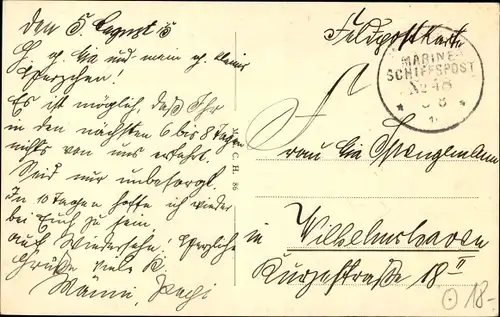 den 5. August 15
Feldpostkarte
MARINE-
SCHIFFSPOST
No 48
* 5 8 *
und mein gel. kleines
Herzchen!
Es ist möglich, daß Ihr
in den nächsten 6 bis 8 Tagen
nichts von uns erfahrt.
Seid nur unbesorgt.
In 10 Tagen hoffe ich wieder
bei Euch zu sein.
Auf Wiedersehn! Herzliche
Grüße viele K.
Männi,
C. H. 86
Frau
in Wilhelmshaven
Kurzestraße 18 II
18.-